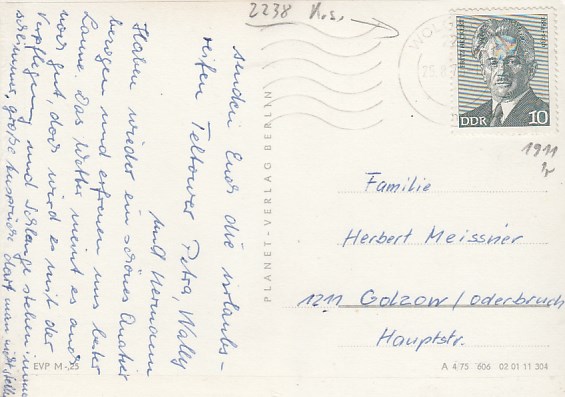 2238 K.s.
senden Euch die urlaubs-
reifen Teltower Petra, Wally
und Hermann
Haben wieder ein schönes Quatier
bezogen und erfreuen uns bester
Laune. Das Wetter meint es auch
noch gut, doch wird es mit der
Verpflegung und Schlange stehen immer
schlimmer, große Ansprüche darf man nicht stellen
PLANET-VERLAG BERLIN
DDR 10
1911
Familie
Herbert Meissner
1211 Golzow/Oderbruch
Hauptstr.
EVP M -,25
A 4 75 606 02 01 11 304